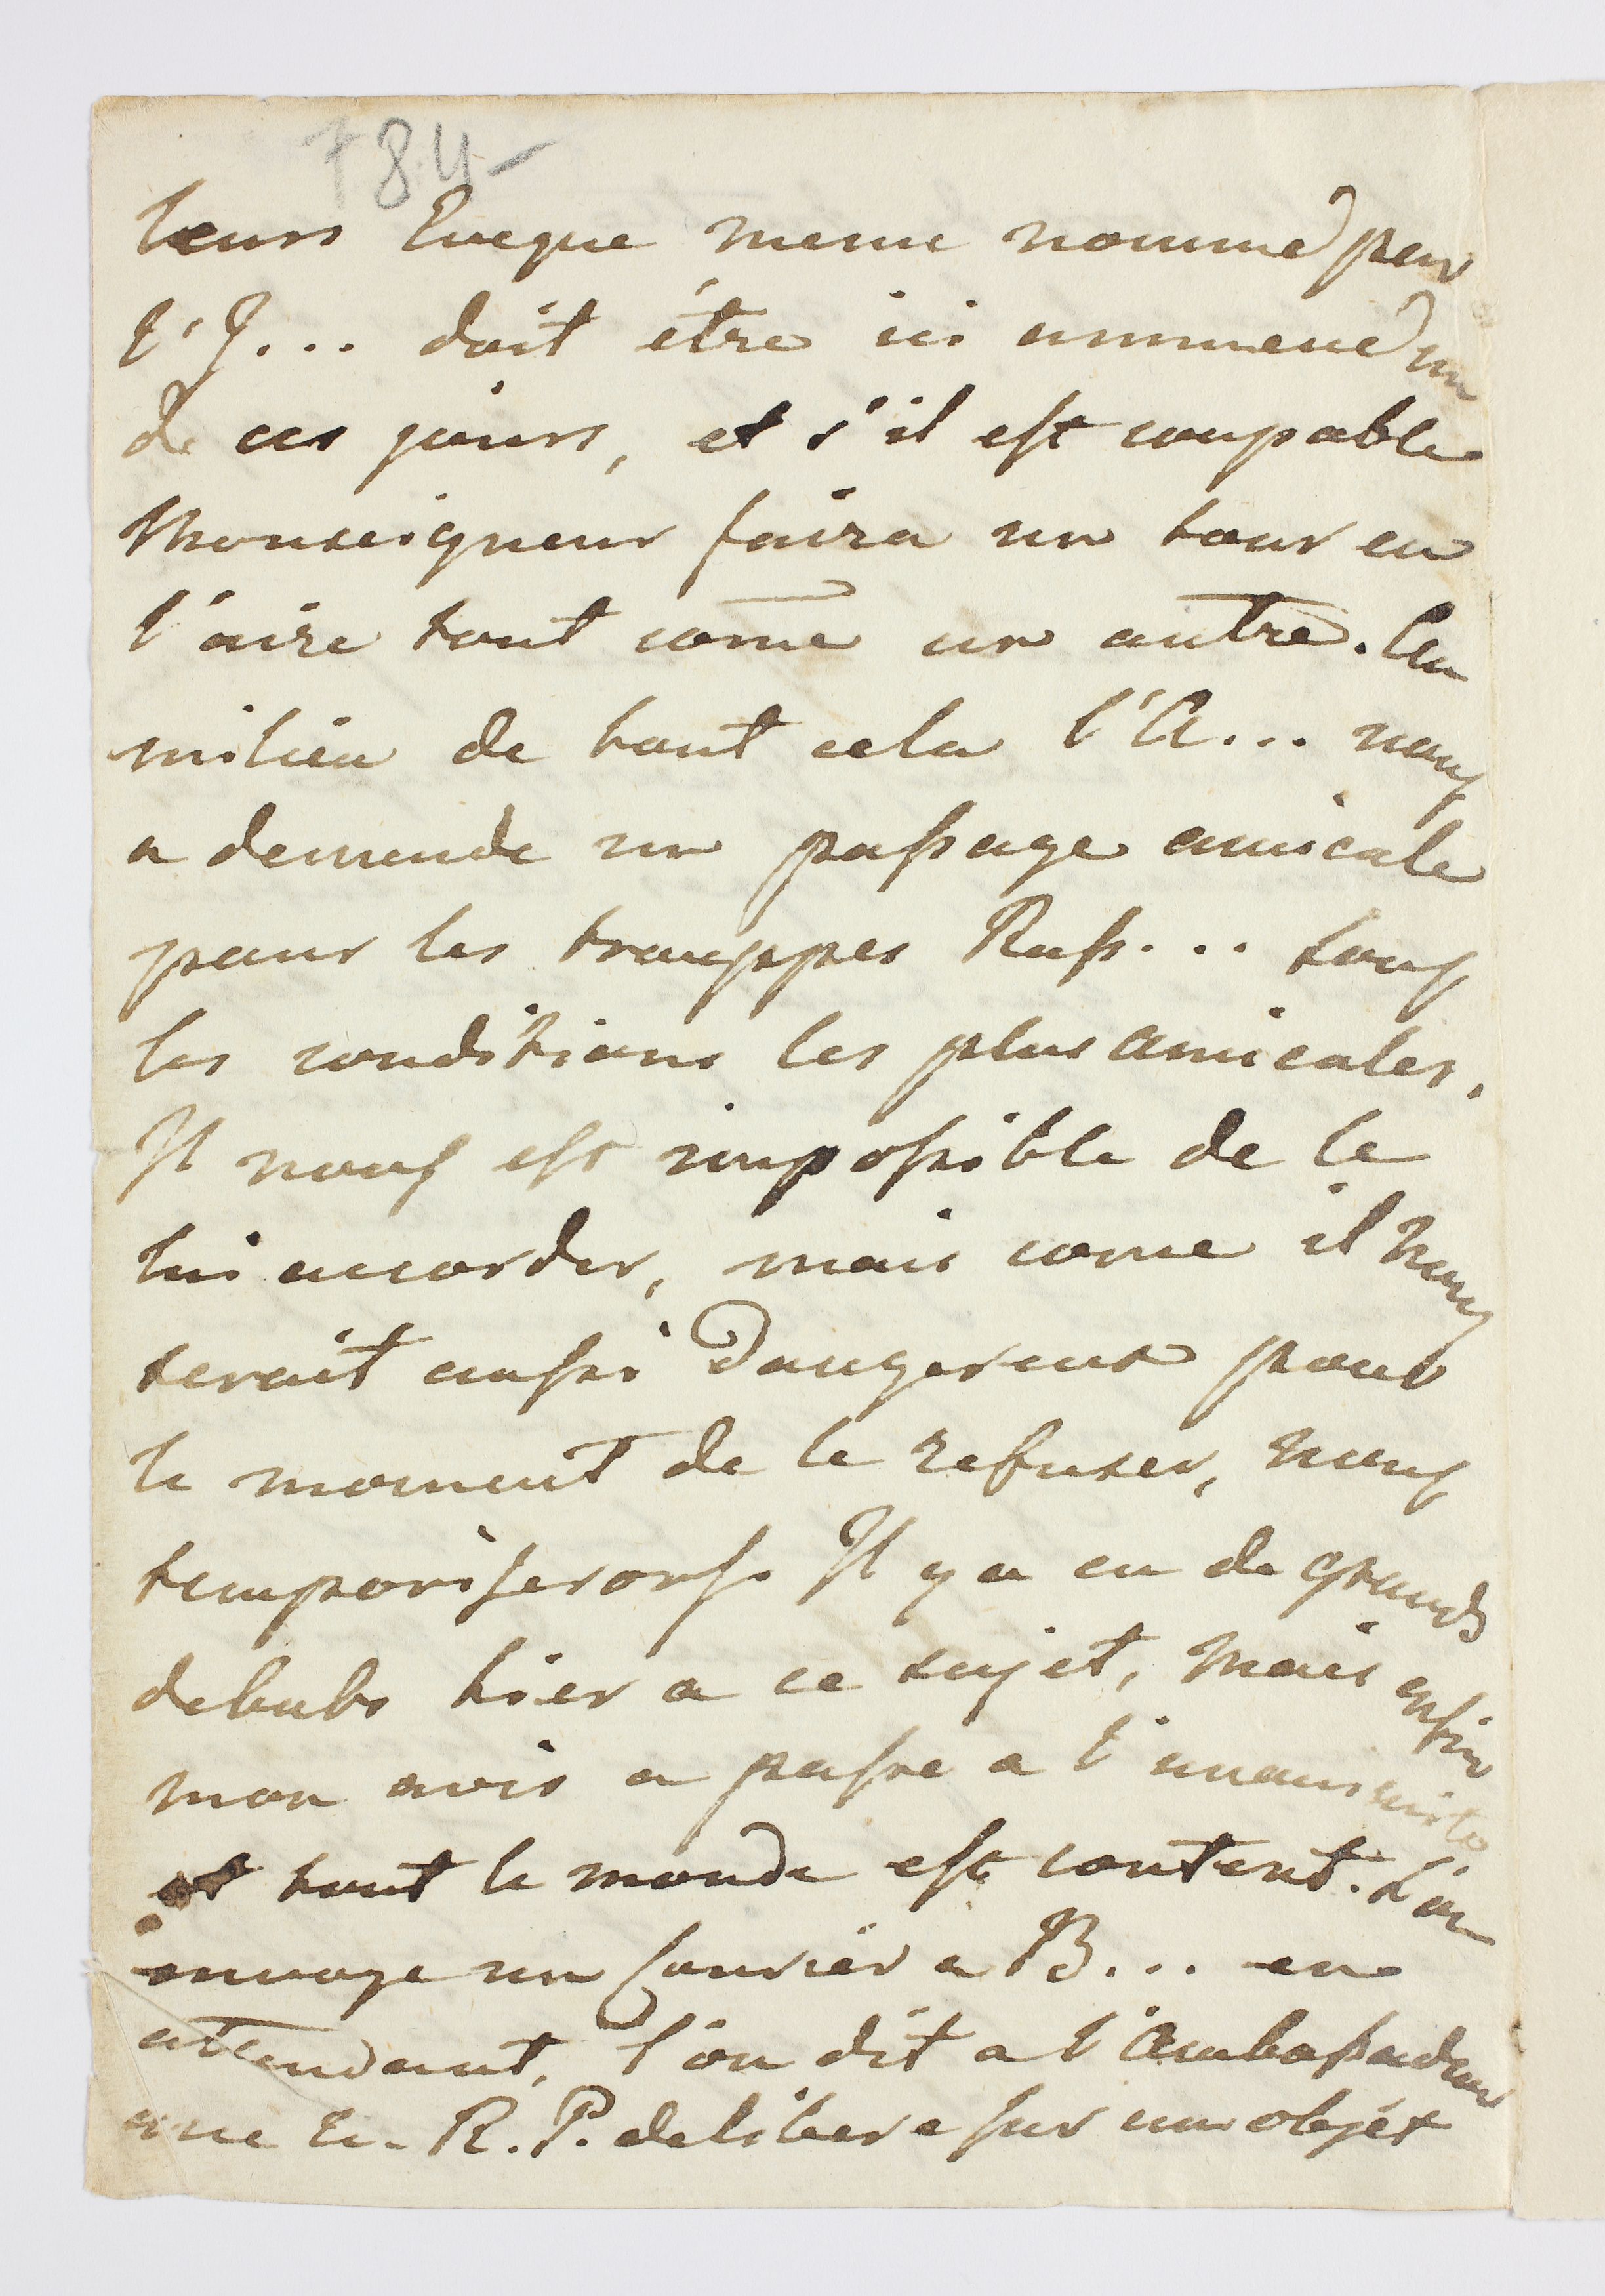 784-
leurs Eveque meme nommé par
l'J... doit étre ici ammené un
de ces jours, et s'il est coupable
Monseigneur faira un tour en
l'aire tout come un autre. Au
milieu de tout cela l'A... nous
a demende un passage amicale
pour les trouppes Russ... sous
les conditions les plus amicales.
Il nous est impossible de le
lui accorder, mais come il nous
serait aussi dangereux pour
le moment de le refuser, nous
temporiserons. Il y a eu de grands
debubs hier a ce sujet, mais enfin
mon avis a passe a l'unanimite
et tout le monde est content. L'on
envoye un Courier a B... en
attendant, l'on dit a l'Ambassadeur
que Er. R. P. delibere sur un objet